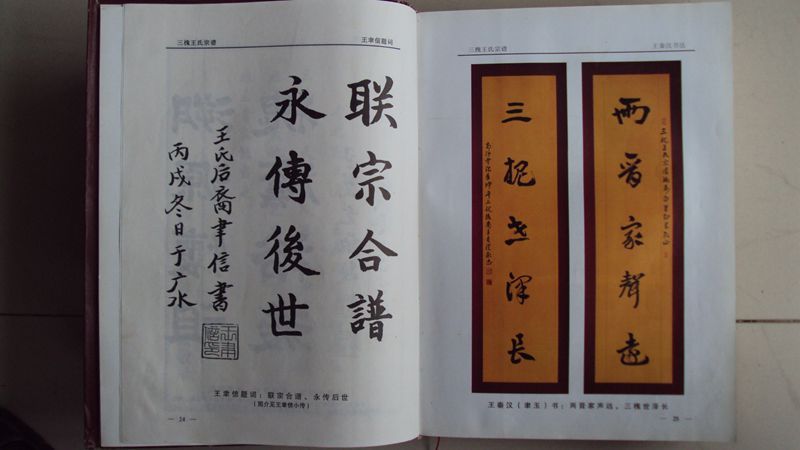 三槐王氏宗谱
王聿信题词
联宗合譜
永傳後世
王氏后裔聿信書
丙戌冬日于广水
王聿信题词：联宗合谱、永传后世
（简介见王聿信小传）
— 24 —
三槐王氏宗谱
王秦汉书法
两晋家聲遠
三槐世泽长
王秦汉（聿玉）书：两晋家声远、三槐世泽长
— 25 —